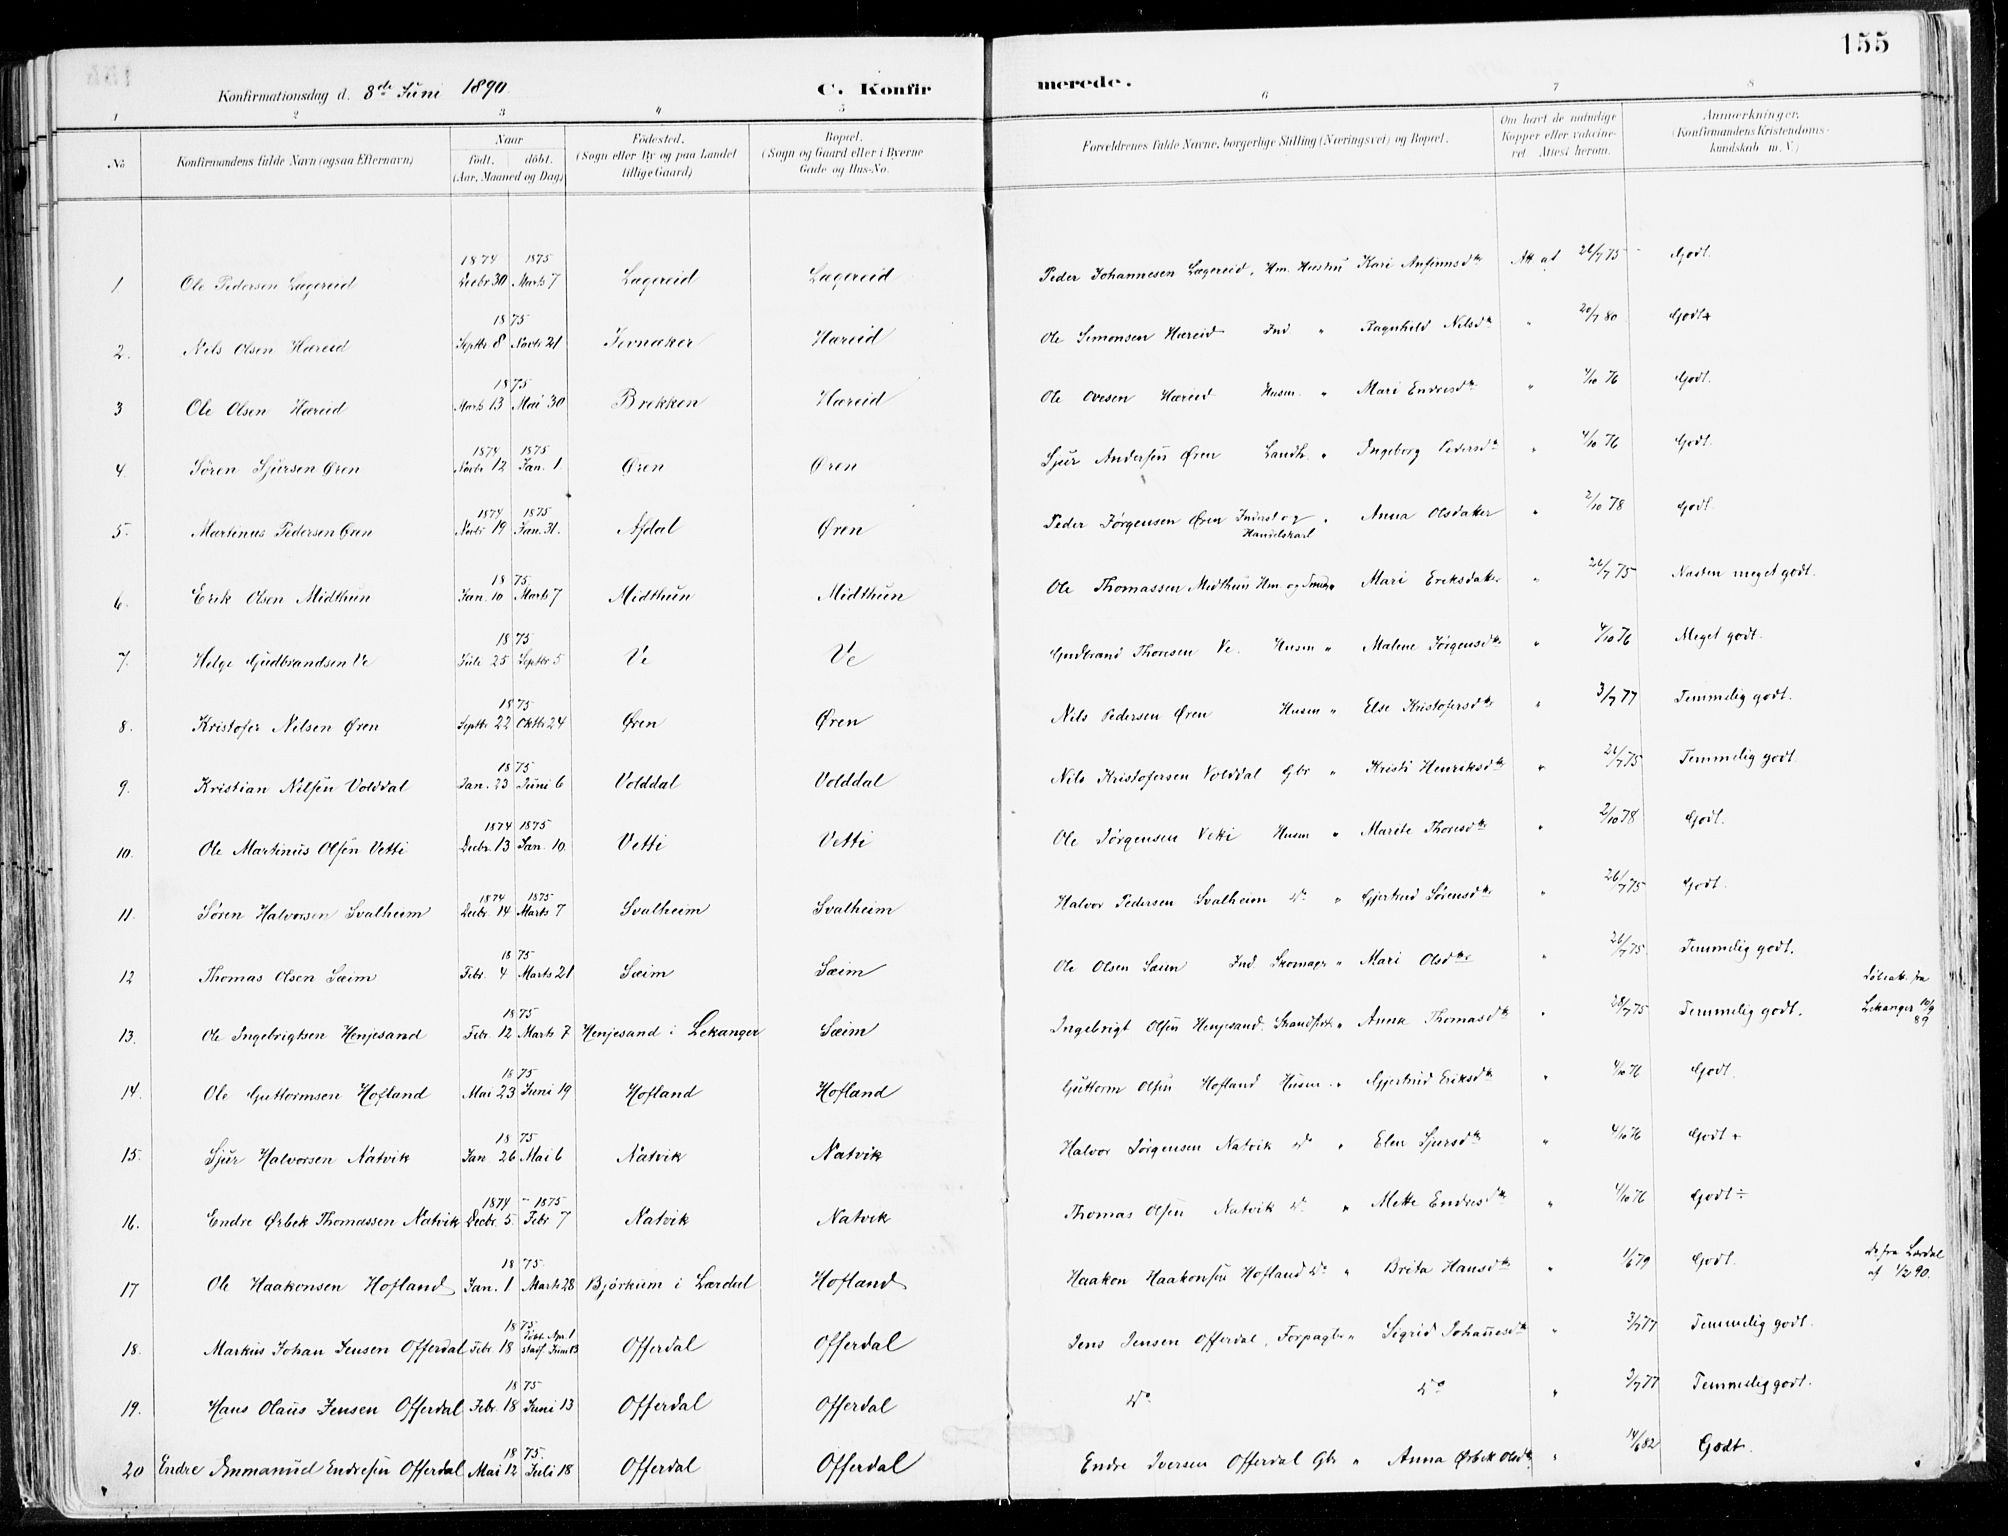 155
Konfirmationsdag d. 8de Juni 1890. C. Konfirmerede.
1 2 3 4 5 6 7 8
No Konfirmandens fulde Navn (ogsaa Efternavn) Naar født. døbt. (Aar, Maaned og Dag) Fødested. (Sogn eller By og paa Landet tillige Gaard) Bopæl. (Sogn og Gaard eller i Byerne Gade og Hus-No. Forældrenes fulde Navne, borgerlige Stilling (Næringsvei) og Bopæl. Om havt de naturlige Kopper eller vaccineret Attest herom. Anmærkninger. (Konfirmandens Kristendomskundskab m. V.)
1 Ole Pedersen Lægereid 1874 Decbr 30 1875 Marts 7 Lægereid Lægereid Peder Johannesen Lægereid, Hm. Hustru Kari Anfinnsdtr Att af 26/7 75 Godt.
2. Nils Olsen Hæreid 1875 Septbr 8 Novbr 21 Jevnaker Hæreid Ole Simonsen Hæreid Ind " Ragnhild Nilsdtr " 20/7 80 Godt+
3 Ole Olsen Hæreid 1875 Marts 13 Mai 30 Brekken Hæreid Ole Ovesen Hæreid Husm. " Mari Endresdtr " 4/10 76 Godt.
4. Søren Sjursen Øren 1874 Novbr 12 1875 Jan. 1. Øren Øren Sjur Andersen Øren Landh. " Ingeborg Pedersdtr " 4/10 76 Godt.
5. Martinus Pedersen Øren 1874 Novbr 19 1875 Jan. 31. Afdal Øren Peder Jørgensen Øren Inderst og Handelskarl " Anna Olsdatter " 2/10 78 Godt.
6. Erik Olsen Midthun 1875 Jan. 10 Marts 7 Midthun Midthun Ole Thomassen Midthun Hm. og Smed " Mari Eriksdatter " 26/7 75 Næsten meget godt.
7. Helge Gudbrandsen Ve 1875 Juli 25 Septbr 5 Ve Ve Gudbrand Thoresen Ve. Husm " Malene Jørgensdtr " 4/10 76 Meget godt.
8. Kristofer Nilsen Øren 1875 Septbr 22 Oktbr 24 Øren Øren Nils Pedersen Øren Husm " Else Kristofersdtr " 3/7 77 Temmelig godt.
9. Kristian Nilsen Volddal 1875 Jan. 23 Juni 6 Volddal Volddal Nils Kristofersen Volddal Gbr " Kristi Henriksdtr " 26/7 75 Temmelig godt.
10. Ole Martinus Olsen Vetti 1874 Decbr. 13 1875 Jan. 10. Vetti Vetti Ole Jørgensen Vetti Husm " Marite Thoresdtr " 2/10 78 Godt.
11. Søren Halvorsen Svalheim 1874 Decbr. 14 1875 Marts 7 Svalheim Svalheim Halvor Pedersen Svalheim Do " Gjertrud Sørensdtr " 26/7 75 Godt.
12 Thomas Olsen Sæim 1875 Febr. 4 Marts 21 Sæim Sæim Ole Olsen Sæim Ind. Skomager " Mari Olsdtr " 26/7 75. Temmelig godt.
13. Ole Ingebrigtsen Henjesand 1875 Febr. 12 Marts 7 Henjesand i Lekanger Sæim Ingebrigt Olsen Henjesand. Strandsid. " Anna Thomasdtr " 28/7 75 Temmelig godt. Døbeatt. fra Lekanger 10/9 89
14. Ole Guttormsen Hofland 1875 Mai 23 Juni 19 Hofland Hofland Guttorm Olsen Hofland Husm. " Gjertrud Eriksdtr " 4/10 76 Godt.
15. Sjur Halvorsen Natvik 1875 Jan 26 Mai 6 Natvik Natvik Halvor Jørgensen Natvik Do " Elen Sjursdtr " 4/10 76 Godt +
16. Endre Ørbek Thomassen Natvik 1874 Decbr. 5 – 1875 Febr 7 Natvik Natvik Thomas Olsen Natvik Do " Mette Endresdtr " 4/10 76 Godt ÷
17 Ole Haakonsen Hofland 1875. Jan. 1 Marts 28 Bjørkum i Lærdal Hofland Haakon Haakonsen Hofland Do " Brita Hansdtr " 1/6 79 Godt. Do fra Lærdal af 1/2 90.
18. Markus Johan Jensen Offerdal 1875 Febr. 18 Døbt. Apr. 1 stadf Juni 13 Offerdal Offerdal Jens Jensen Offerdal, Forpagter " Sigrid Johannesdtr " 3/7 77 Temmelig godt.
19. Hans Olaus Jensen Offerdal 1875 Febr. 18 Juni 13 Offerdal Offerdal Do Do " 3/7 77 Temmelig godt.
20 Endre Emmanuel Endresen Offerdal 1875. Mai 12 Juli 18 Offerdal Offerdal Endre Iversen Offerdal Gbr " Anna Ørbek Olsdtr " 14/6 82 Godt.